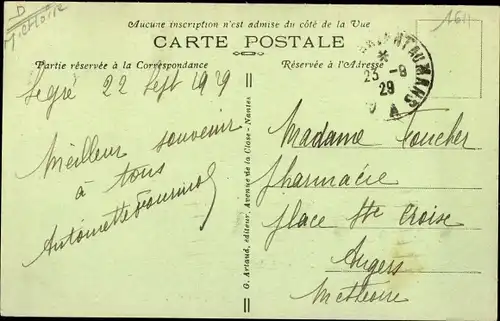 D
Aucune inscription n'est admise du côté de la Vue
CARTE POSTALE
Partie réservée à la Correspondance
Réservée à l'Adresse
1611
23 -9
29
Segré 22 Sept 1929
Meilleur souvenir
à tous
Antoinette
G. Artaud, éditeur, Avenue de la Close - Nantes
Madame Foucher
Pharmacie
place Ste Croise
Angers
M et Loire